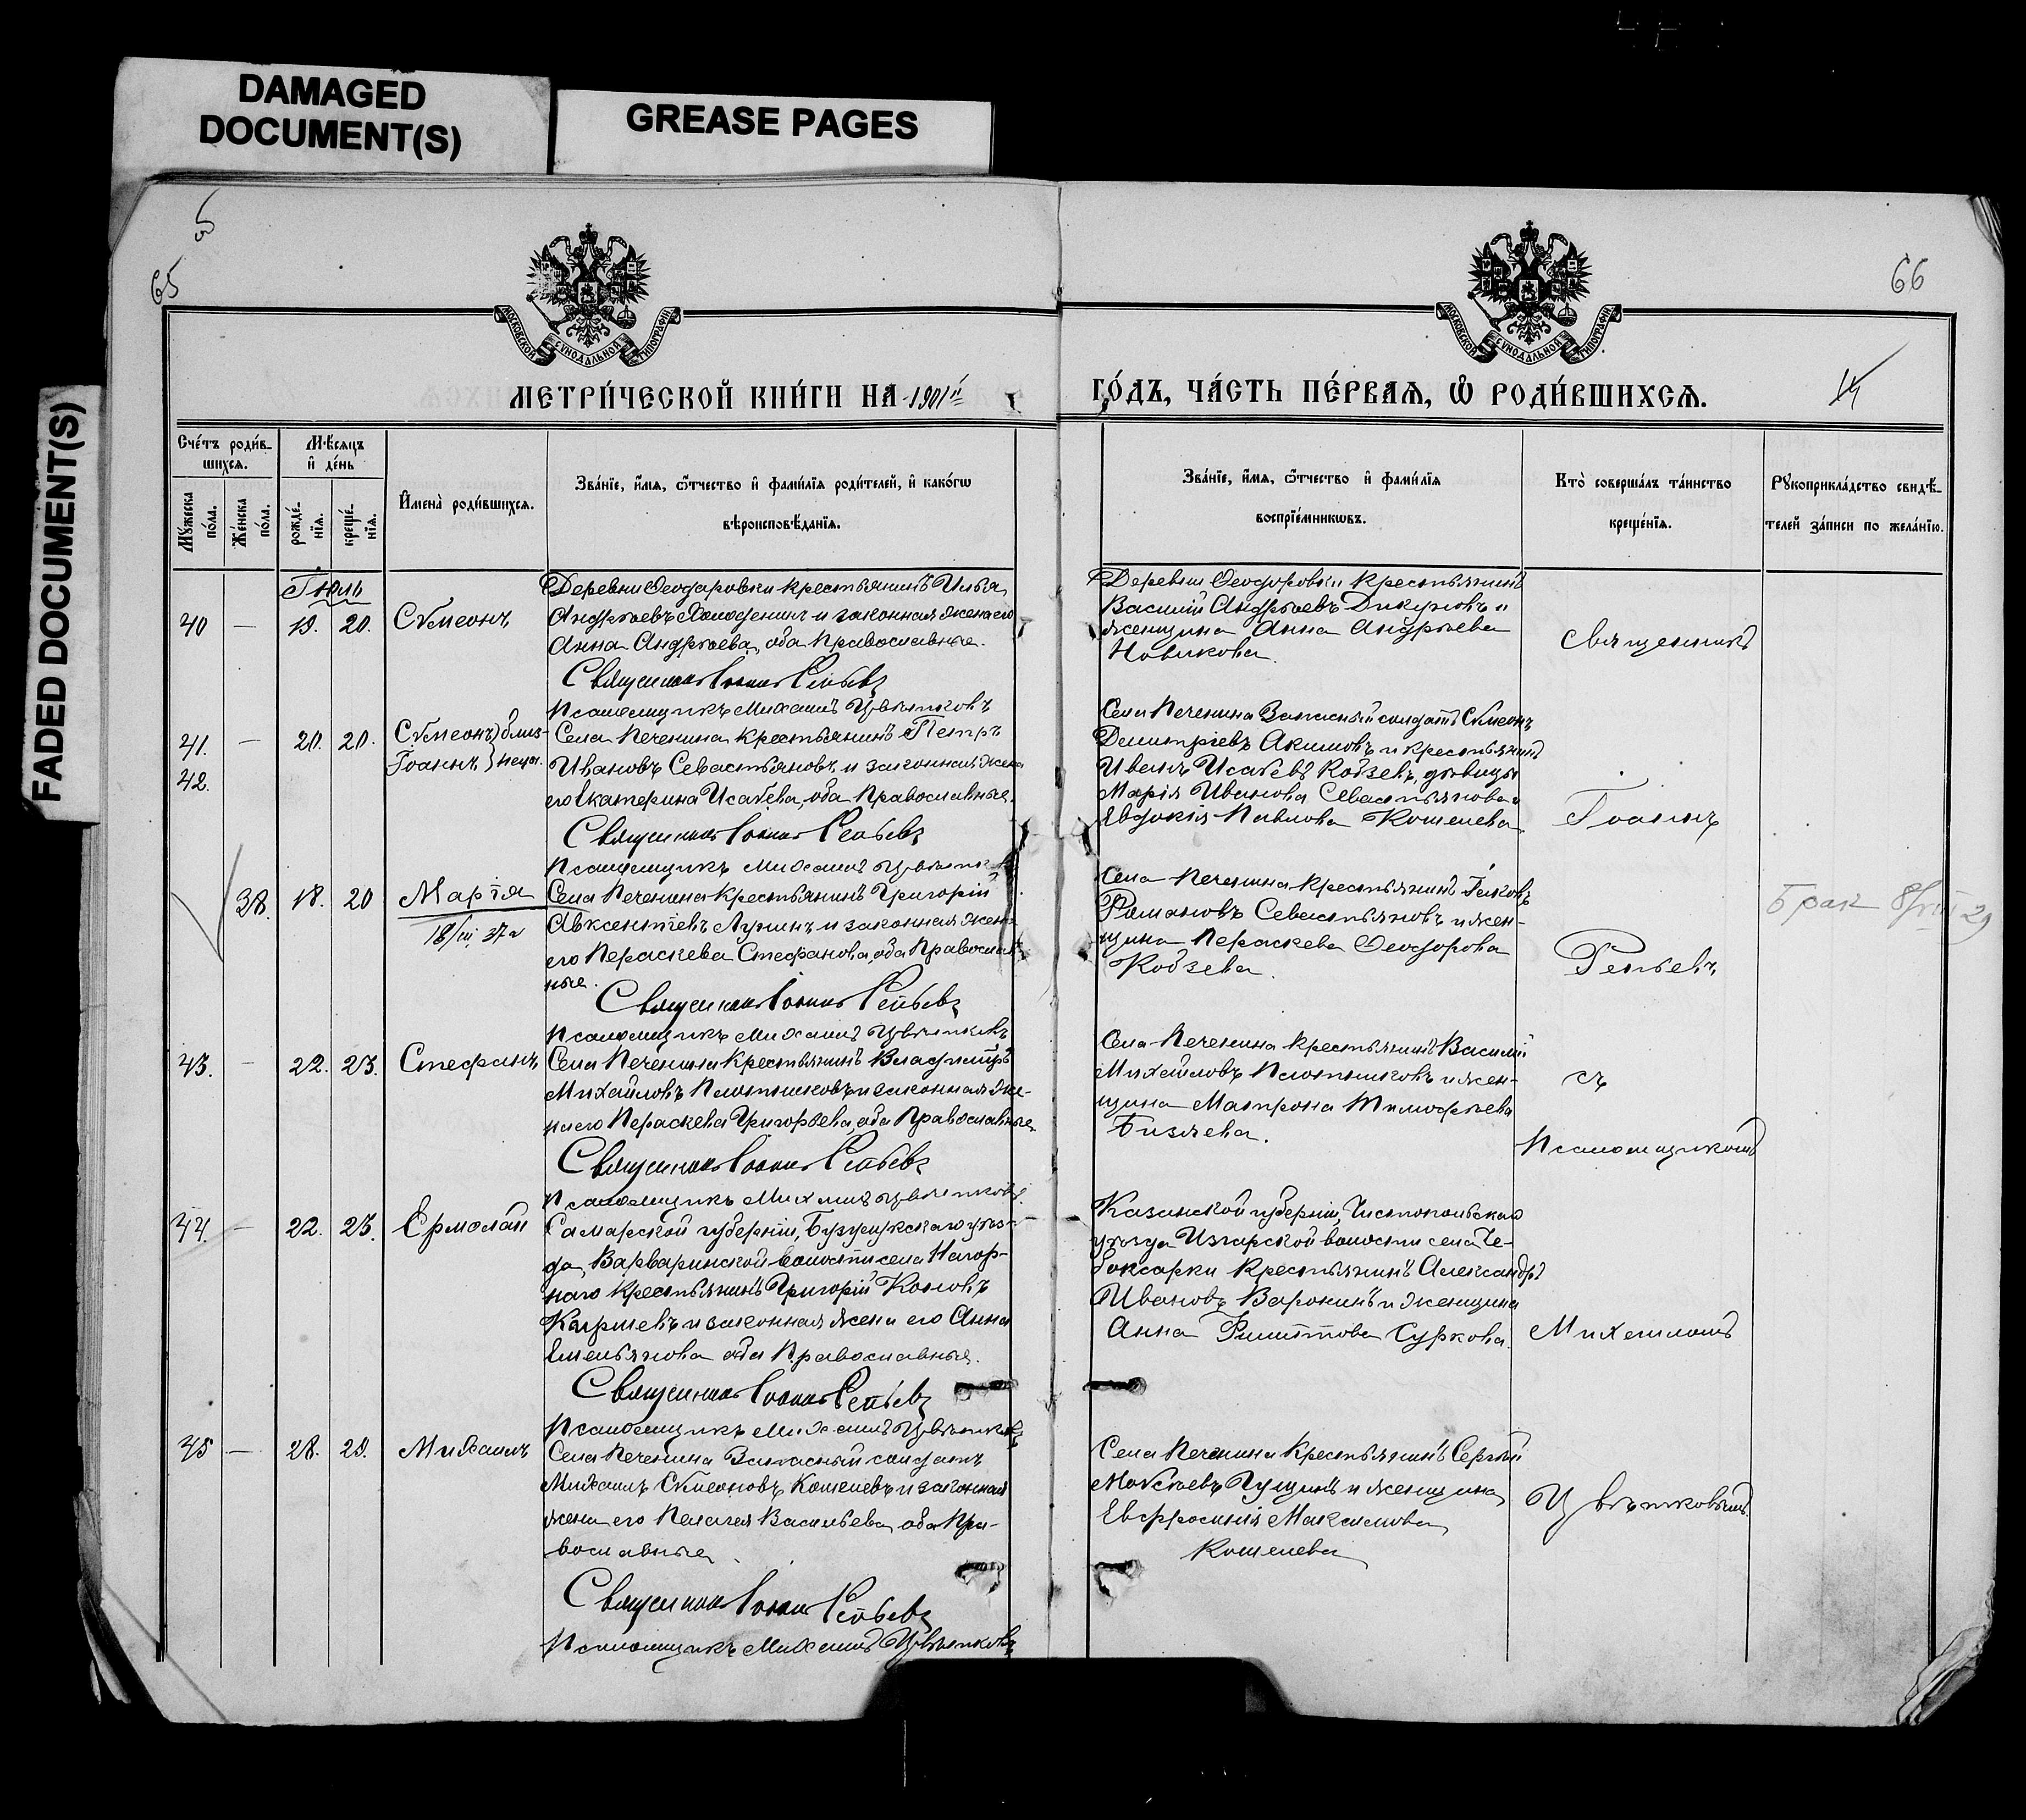 DAMAGED
DOCUMENT(S)
GREASE PAGES
FADED DOCUMENT(S)
5
65
66
МОСКОВСКОЙ СѴНОДАЛЬНОЙ ТИПОГРАФІИ
МОСКОВСКОЙ СѴНОДАЛЬНОЙ ТИПОГРАФІИ
МЕТРИ́ЧЕСКОЙ КНИ́ГИ НА 1901й
ГО́ДЪ, ЧА́СТЬ ПЕ́РВАѦ, Ѡ РОДИ́ВШИХСѦ.
Сче́тъ роди́в-
шихсѧ.
Мꙋжеска
по́ла.
Же́нска
по́ла.
Мѣ́сѧцъ
и҆ де́нь
рожде́-
нїѧ.
креще́-
нїѧ.
И҆мена̀ роди́вшихсѧ.
Зва́нїе, и҆́мѧ, ѻ҆́тчество и҆ фами́лїѧ роди́телей, и҆ како́гѡ
вѣроисповѣ́данїѧ.
Зва́нїе, и҆́мѧ, ѻ҆́тчество и҆ фами́лїѧ
воспрїе́мникѡвъ.
Кто̀ соверша́лъ та́инство
креще́нїѧ.
Рꙋкоприкла́дство свидѣ́-
телей за́писи по жела́нїю.
Іюль
40 — 19. 20. Сѵмеонъ
Деревни Ѳеодоровки крестьянинъ Илья
Андреевъ и законная жена его
Анна Андреева, оба Православные.
Священникъ Іоаннъ Репьевъ
Псаломщикъ Михаилъ Цвѣтковъ
Деревни Ѳеодоровки крестьянинъ
Василій Андреевъ Дикуновъ и
женщина Анна Андреева
Новикова.
Священникъ
41. — 20. 20. Сѵмеонъ } близ-
42. Іоаннъ } нецы.
Села Печенина крестьянинъ Петръ
Ивановъ Севастьяновъ и законная жена
его Екатерина Исаева, оба Православные.
Священникъ Іоаннъ Репьевъ
Псаломщикъ Михаилъ Цвѣтковъ
Села Печенина Запасный солдатъ Сѵмеонъ
Димитріевъ Акимовъ и крестьянинъ
Иванъ Исаевъ Кобзевъ, дѣвицы
Марія Иванова Севастьянова и
Евдокія Павлова Кошелева
Іоаннъ
38. 18. 20 Марія
18/III 37 г
Села Печенина крестьянинъ Григорій
Авксентіевъ Лунинъ и законная жена
его Параскева Стефанова, оба Православ-
ные.
Священникъ Іоаннъ Репьевъ
Псаломщикъ Михаилъ Цвѣтковъ
Села Печенина крестьянинъ Іаковъ
Романовъ Севастьяновъ и жен-
щина Параскева Ѳеодорова
Кобзева.
Репьевъ
Брак 8/VIII 29
43. — 22. 23. Стефанъ
Села Печенина крестьянинъ Владиміръ
Михайловъ Плотниковъ и законная же-
на его Параскева Григорьева, оба Православные
Священникъ Іоаннъ Репьевъ
Псаломщикъ Михаилъ Цвѣтковъ
Села Печенина крестьянинъ Василій
Михайловъ Плотниковъ и жен-
щина Матрона Тимофѣева
Бизяева.
съ
Псаломщикомъ
44. — 22. 23. Ермолай
Самарской губерніи, Бузулукскаго уѣз-
да, Варваринской волости села Нагор-
наго крестьянинъ Григорій
и законная жена его Анна
Емельянова оба Православные.
Священникъ Іоаннъ Репьевъ
Псаломщикъ Михаилъ Цвѣтковъ
Казанской губерніи, Чистопольскаго
уѣзда Изгарской волости села Че-
боксарки крестьянинъ Александръ
Ивановъ Воронинъ и женщина
Анна Филиппова Суркова.
Михаиломъ
45 — 28. 29. Михаилъ
Села Печенина Запасный солдатъ
Михаилъ Сѵмеоновъ Кошелевъ и законная
жена его Пелагея Васильева, оба Пра-
вославные.
Священникъ Іоаннъ Репьевъ
Псаломщикъ Михаилъ Цвѣтковъ
Села Печенина крестьянинъ Сергѣй
Моѵсеевъ Гущинъ и женщина
Евфросинія Максимова
Кошелева
Цвѣтковымъ.